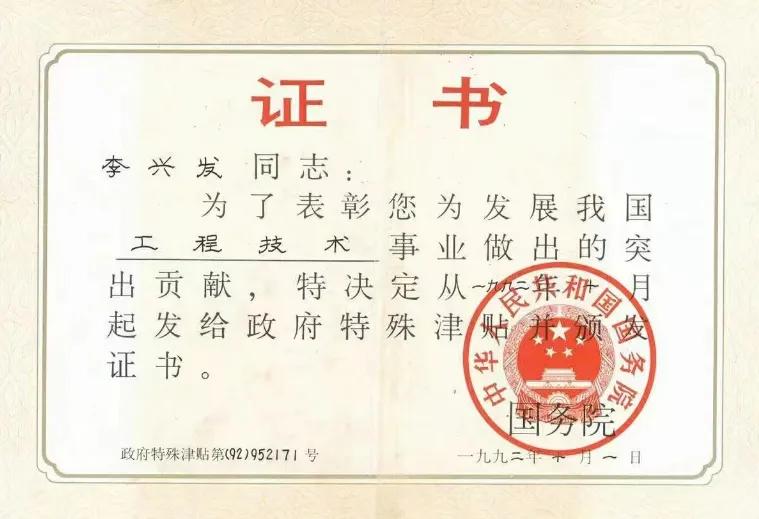 证书
李兴发同志：
为了表彰您为发展我国
工程技术事业做出的突
出贡献，特决定从一九九二年十月
起发给政府特殊津贴并颁发
证书。
中华人民共和国国务院
国务院
政府特殊津贴第(92)952171号
一九九二年十月一日